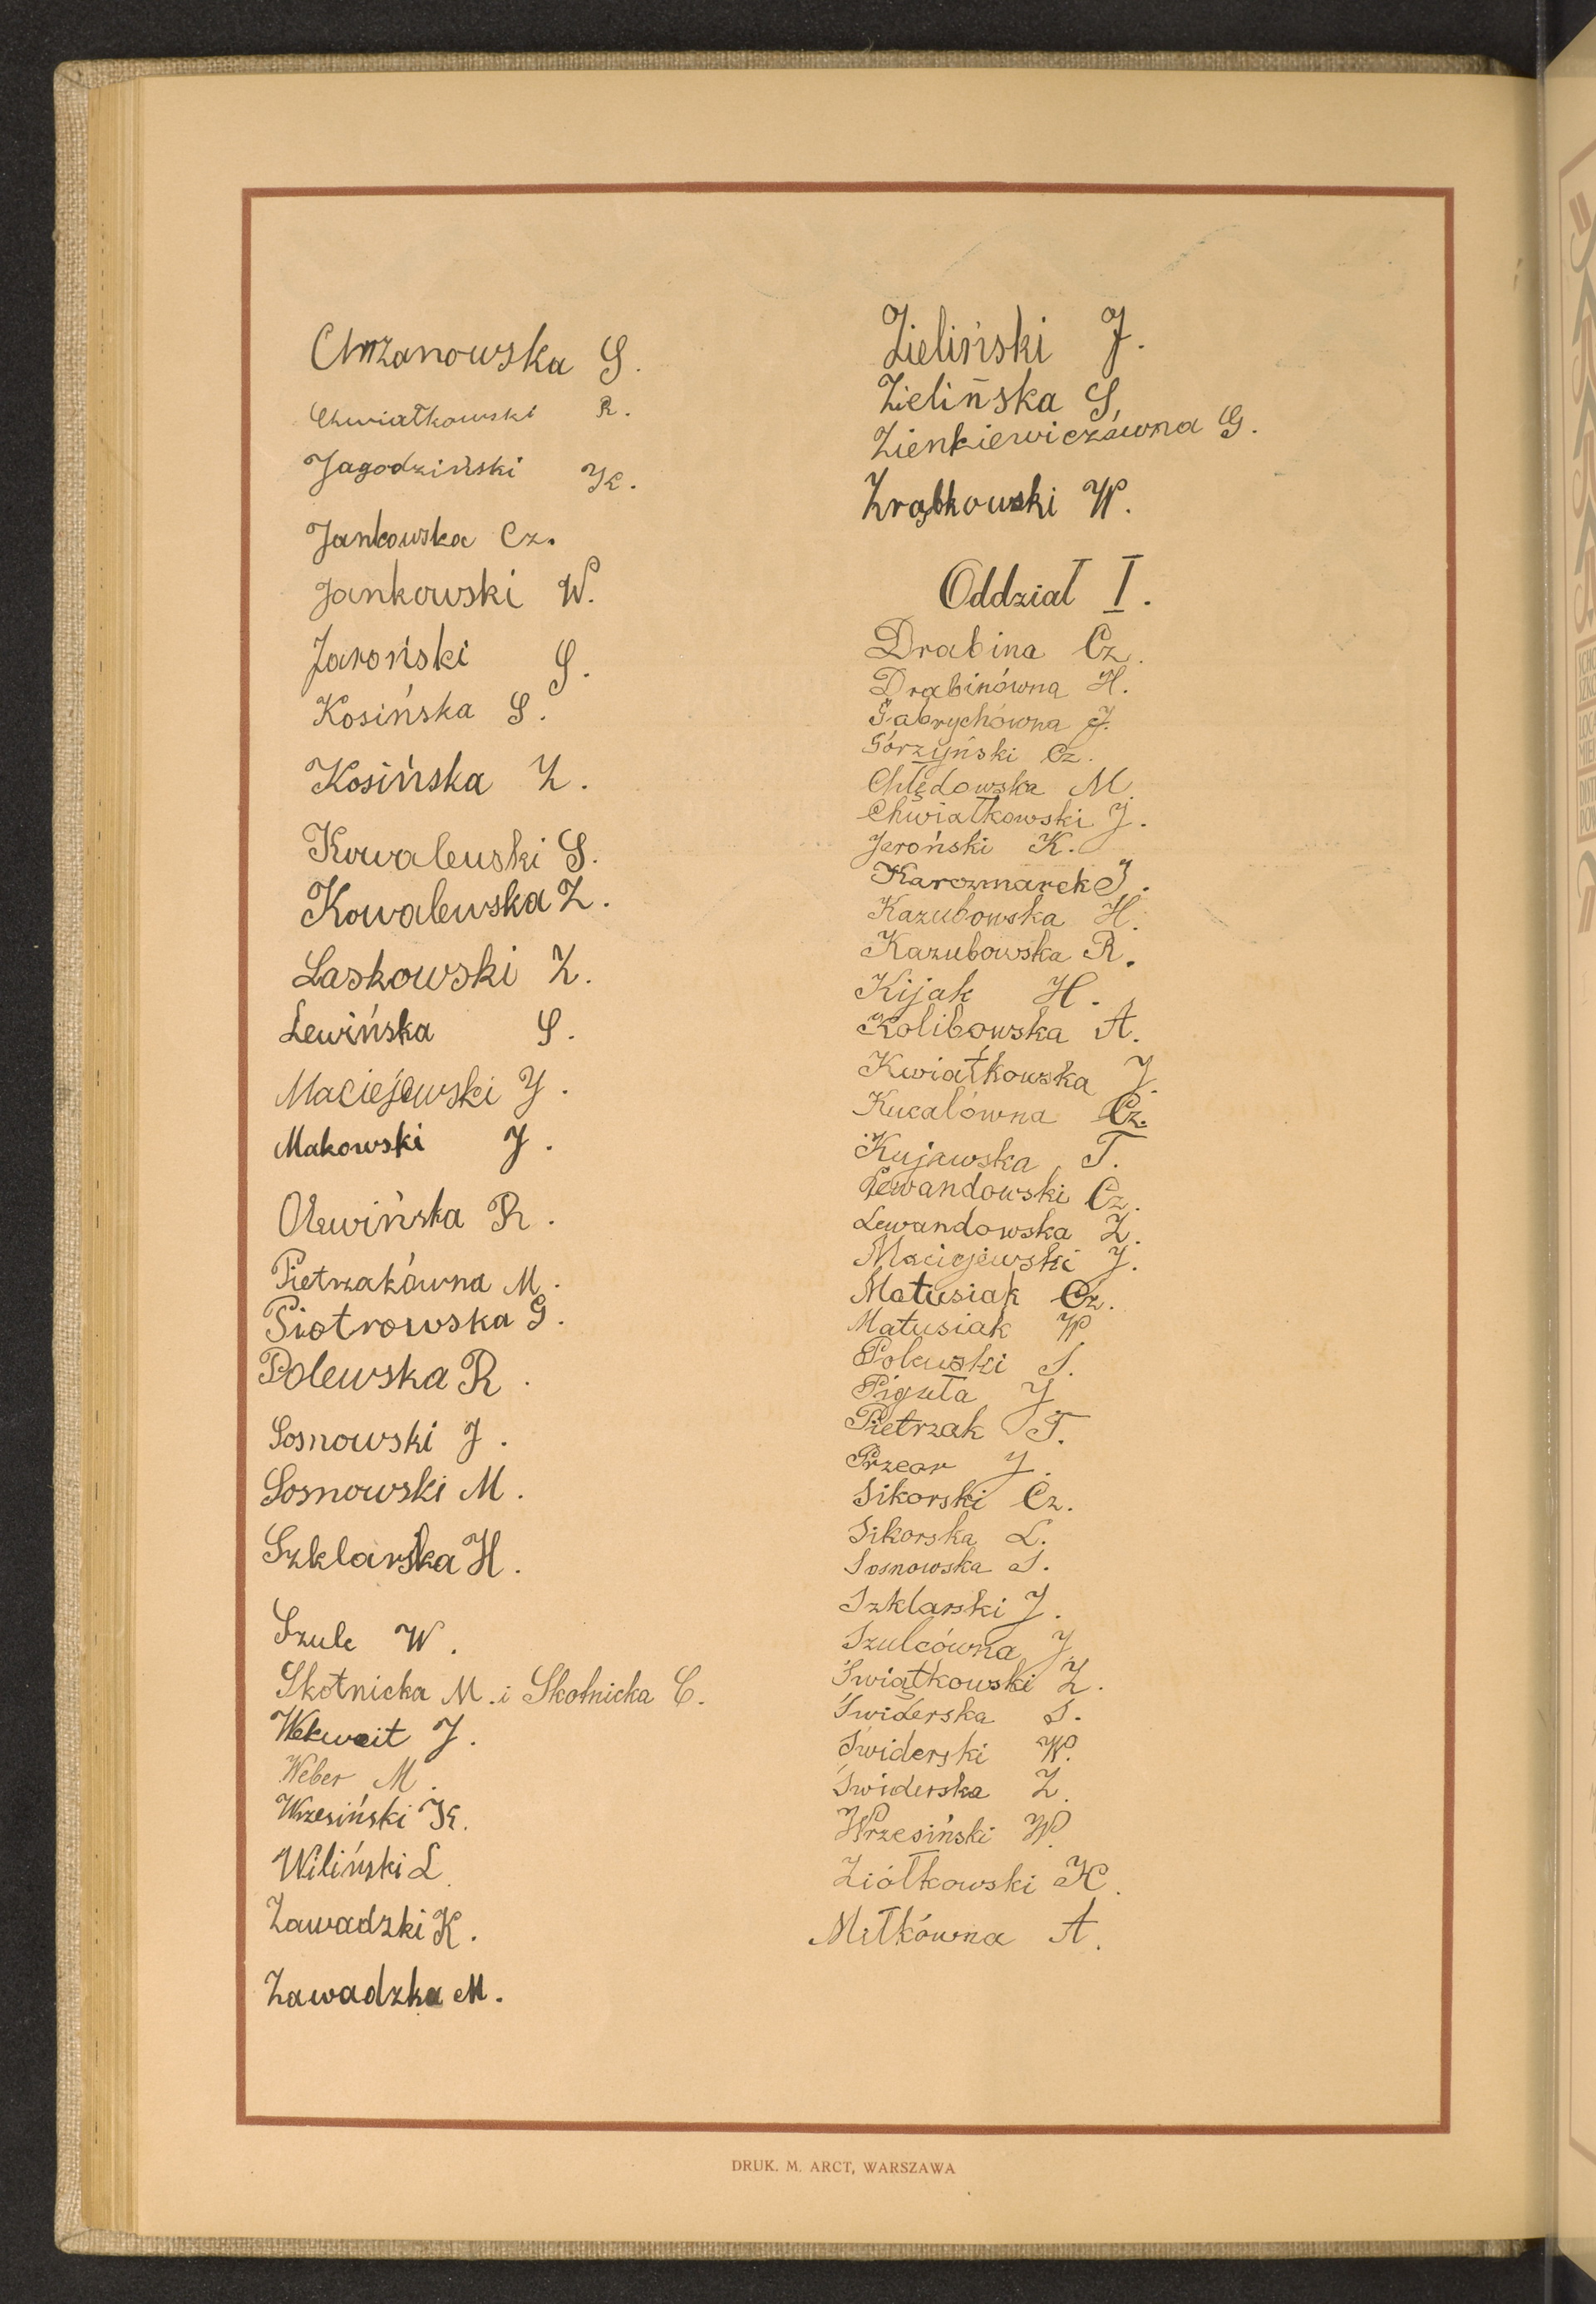 Chrzanowska S.
Chwiatkowski R.
Jagodziński K.
Jankowska Cz.
Jankowski W.
Jaroński S.
Kosińska S.
Kosińska Z.
Kowalewski S.
Kowalewska Z.
Laskowski Z.
Lewińska S.
Maciejewski J.
Makowski J.
Olewińska R.
Pietrzakówna M.
Piotrowska G.
Polewska R.
Sosnowski J.
Sosnowski M.
Szklarska H.
Szulc W.
Skotnicka M. i Skotnicka C.
Wekweit J.
Weber M.
Wrzesiński K.
Wiliński L.
Zawadzki K.
Zawadzka M.
Zieliński J.
Zielińska S.
Zienkiewiczówna G.
Zrąbkowski W.
Oddział I.
Drabina Cz.
Drabinówna H.
Gabrychówna J.
Górzyński Cz.
Chłędowska M.
Chwiatkowski J.
Jaroński K.
Karczmarek J.
Kazubowska H.
Kazubowska R.
Kijak H.
Kolibowska A.
Kwiatkowska J.
Kucalówna Cz.
Kujawska T.
Lewandowski Cz.
Lewandowska Z.
Maciejewski J.
Matusiak Cz.
Matusiak W.
Polewski S.
Piguła J.
Pietrzak T.
J.
Sikorski Cz.
Sikorska L.
Sosnowska S.
Szklarski J.
Szulcówna J.
Świątkowski Z.
Świderska S.
Świderski W.
Świderska Z.
Wrzesiński W.
Ziółkowski K.
Miłkówna A.
DRUK. M. ARCT, WARSZAWA